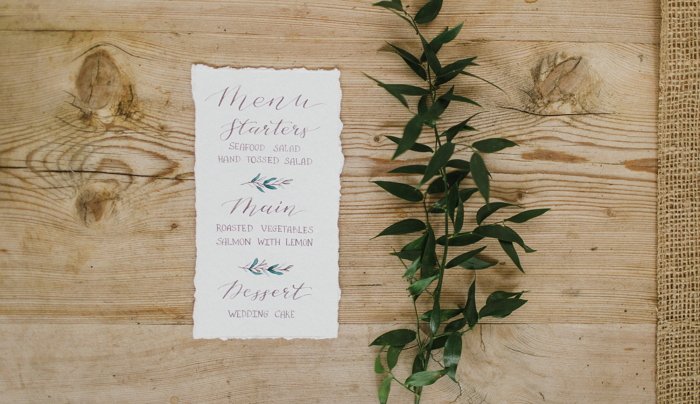 Menu
Starters
SEAFOOD SALAD
HAND TOSSED SALAD
Main
ROASTED VEGETABLES
SALMON WITH LEMON
Dessert
WEDDING CAKE